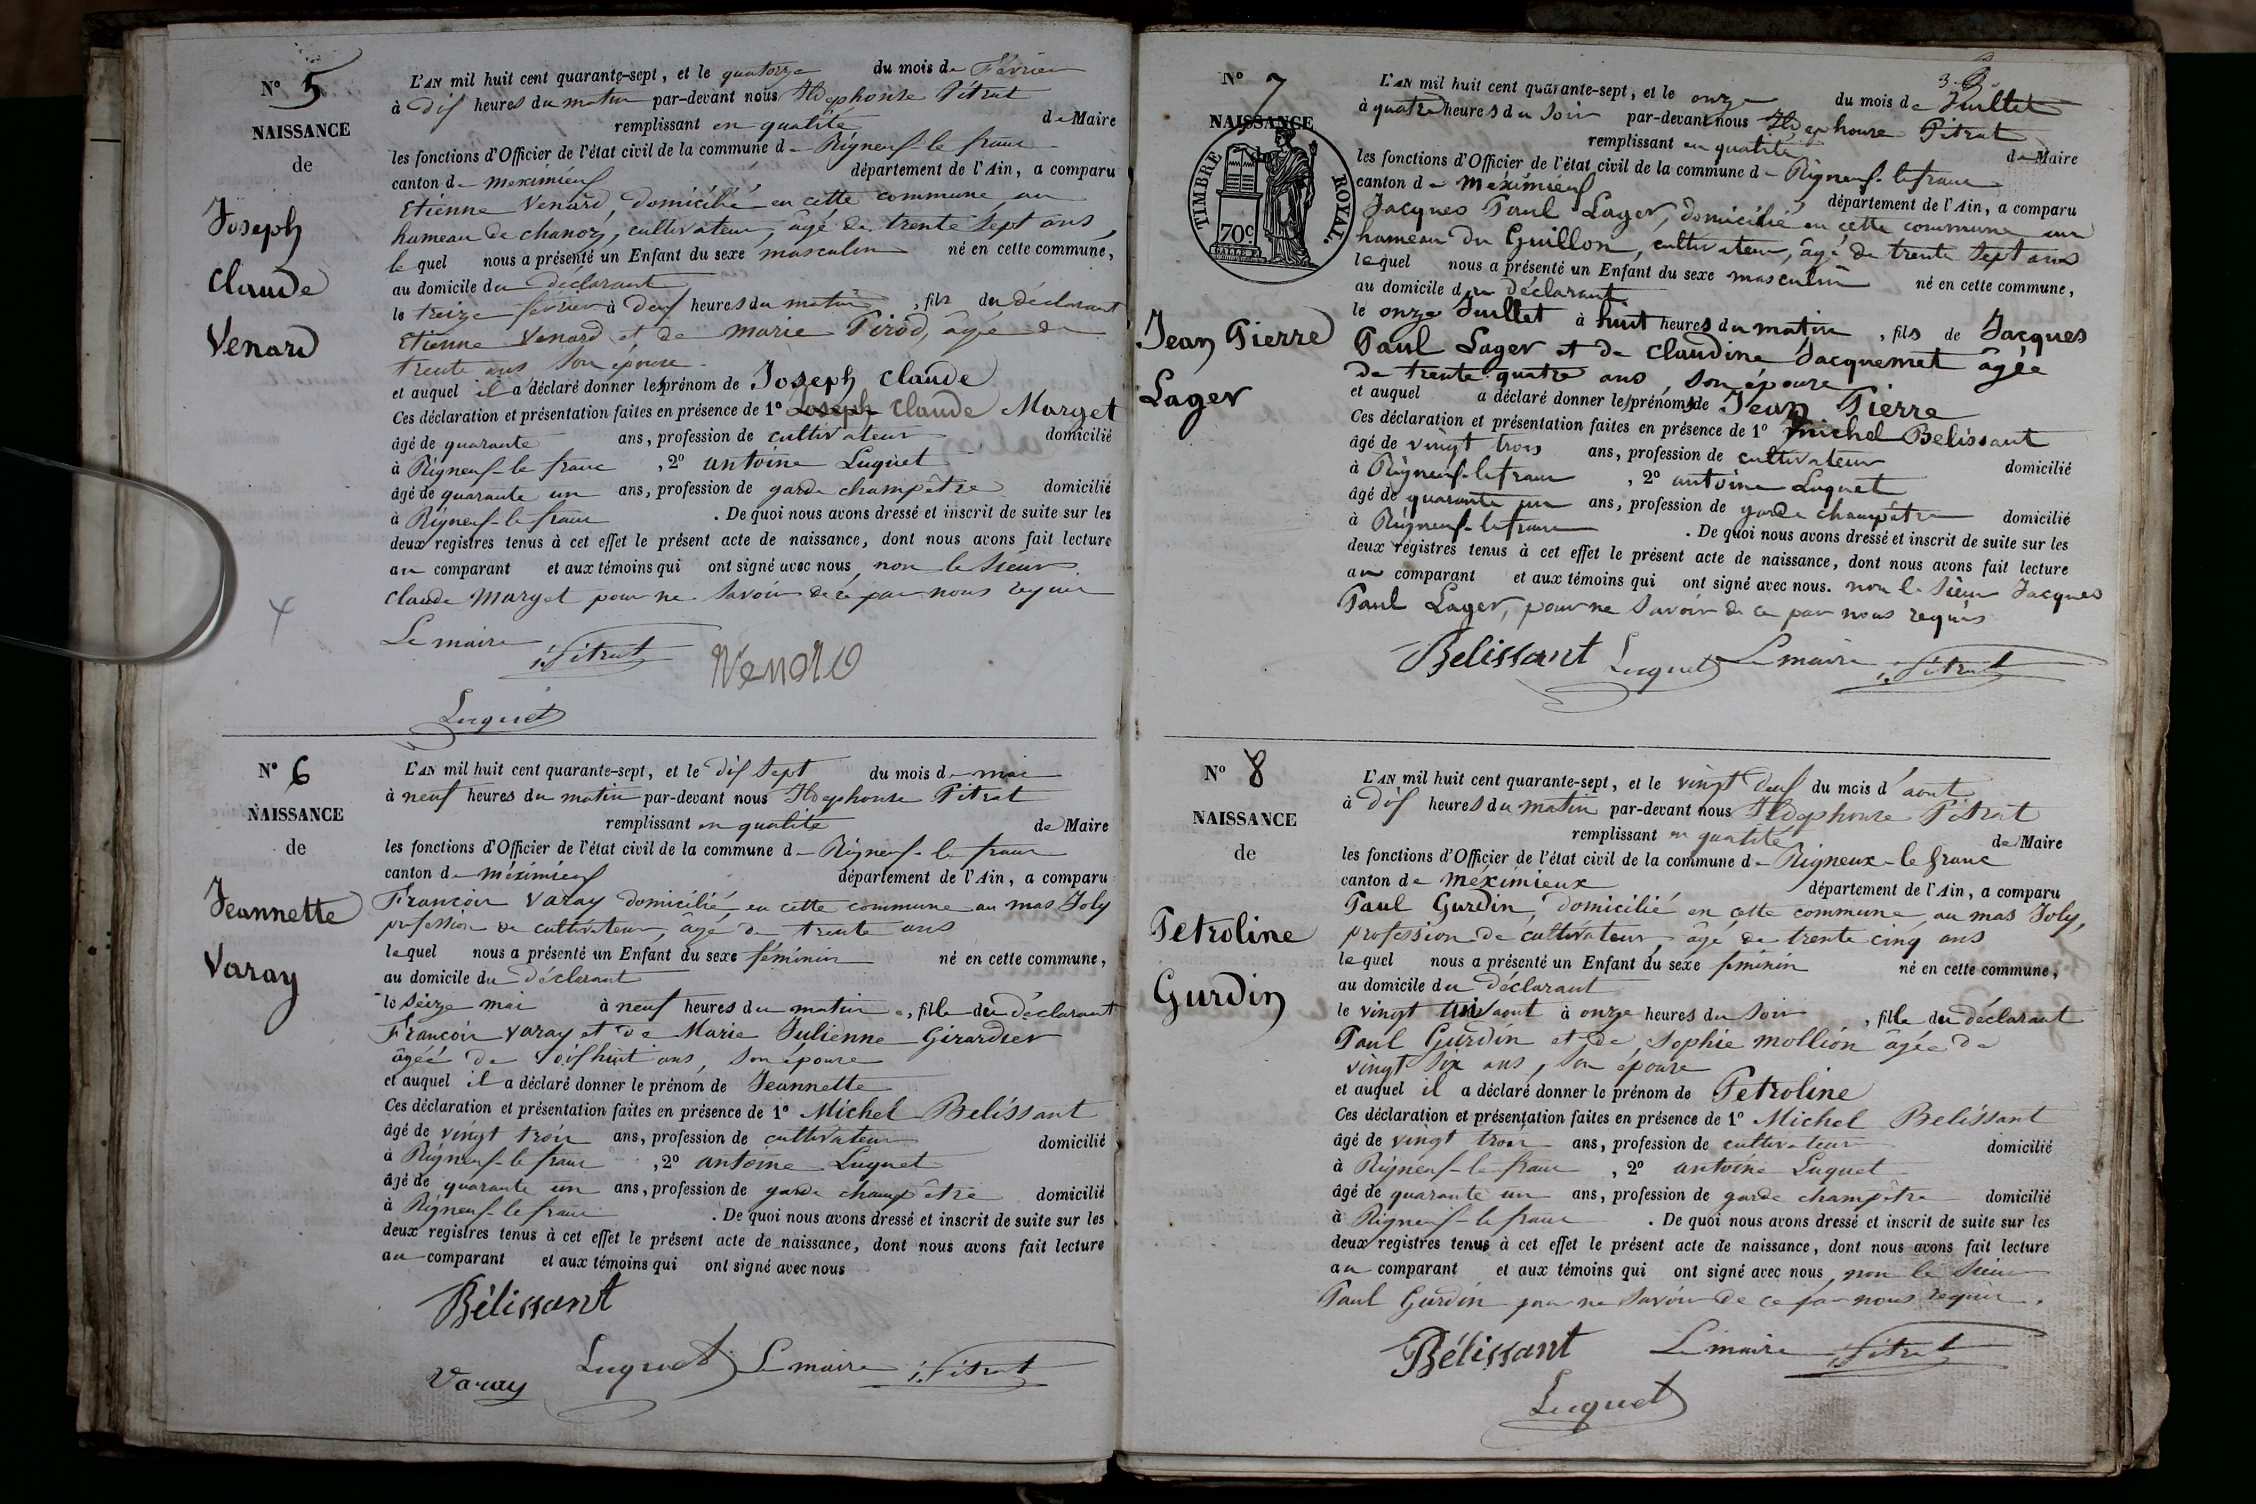 N° 5
NAISSANCE
de
Joseph
Claude
Venard
L'AN mil huit cent quarante-sept, et le quatorze du mois de Février
à dix heures du matin par-devant nous Ildephonse Pitrat
remplissant en qualité de Maire
les fonctions d'Officier de l'état civil de la commune de Rigneux-le franc
canton de meximieux département de l'Ain, a comparu
Etienne Venard, domicilié en cette commune au
hameau de chanoz, cultivateur, âgé de trente sept ans,
lequel nous a présenté un Enfant du sexe masculin né en cette commune,
au domicile du déclarant
le treize fevrier à deux heures du matin, fils du déclarant
Etienne Venard et de marie Pirod, âgée de
trente ans son épouse
et auquel il a déclaré donner les prénom de Joseph Claude
Ces déclaration et présentation faites en présence de 1° Joseph Claude Marget
âgé de quarante ans, profession de cultivateur domicilié
à Rigneux-le franc, 2° antoine Luquet
âgé de quarante un ans, profession de garde champêtre domicilié
à Rigneux-le franc. De quoi nous avons dressé et inscrit de suite sur les
deux registres tenus à cet effet le présent acte de naissance, dont nous avons fait lecture
au comparant et aux témoins qui ont signé avec nous, non le sieur
Claude Marget pour ne savoir de ce par nous requis
Le maire I. Pitrat Venard
Luquet
N° 6
NAISSANCE
de
Jeannette
Varay
L'AN mil huit cent quarante-sept, et le dix sept du mois de mai
à neuf heures du matin par-devant nous Ildephonse Pitrat
remplissant en qualité de Maire
les fonctions d'Officier de l'état civil de la commune de Rigneux-le franc
canton de méximieux département de l'Ain, a comparu
Francois Varay domicilié en cette commune au mas Joly
profession de cultivateur, âgé de trente ans
lequel nous a présenté un Enfant du sexe féminin né en cette commune,
au domicile du déclarant
le seize mai à neuf heures du matin, fille du déclarant
Francois Varay et de Marie Julienne Girardier
âgée de dix huit ans, son épouse
et auquel il a déclaré donner le prénom de Jeannette
Ces déclaration et présentation faites en présence de 1° Michel Belissant
âgé de vingt trois ans, profession de cultivateur domicilié
à Rigneux-le franc, 2° antoine Luquet
âgé de quarante un ans, profession de garde champêtre domicilié
à Rigneux-le franc. De quoi nous avons dressé et inscrit de suite sur les
deux registres tenus à cet effet le présent acte de naissance, dont nous avons fait lecture
au comparant et aux témoins qui ont signé avec nous
Bélissant
Varay Luquet Le maire I. Pitrat
N° 7
NAISSANCE
TIMBRE ROYAL.
70c
Jean Pierre
Lager
L'AN mil huit cent quarante-sept, et le onze du mois de Juillet
à quatre heures du soir par-devant nous Ildephonse Pitrat
remplissant en qualité de Maire
les fonctions d'Officier de l'état civil de la commune de Rigneux-le franc
canton de méximieux département de l'Ain, a comparu
Jacques Paul Lager, domicilié en cette commune au
hameau du Guillon, cultivateur, âgé de trente sept ans
lequel nous a présenté un Enfant du sexe masculin né en cette commune,
au domicile du déclarant
le onze Juillet à huit heures du matin, fils de Jacques
Paul Lager et de claudine Jacquemet âgée
de trente quatre ans, son épouse
et auquel a déclaré donner les prénoms de Jean Pierre
Ces déclaration et présentation faites en présence de 1° Michel Belissant
âgé de vingt trois ans, profession de cultivateur domicilié
à Rigneux-le franc, 2° antoine Luquet
âgé de quarante un ans, profession de garde champêtre domicilié
à Rigneux-le franc. De quoi nous avons dressé et inscrit de suite sur les
deux registres tenus à cet effet le présent acte de naissance, dont nous avons fait lecture
au comparant et aux témoins qui ont signé avec nous. non le sieur Jacques
Paul Lager, pour ne savoir de ce par nous requis
Belissant Luquet Le maire I. Pitrat
N° 8
NAISSANCE
de
Petroline
Gurdin
L'AN mil huit cent quarante-sept, et le vingt deux du mois d'aout
à dix heures du matin par-devant nous Ildephonse Pitrat
remplissant en qualité de Maire
les fonctions d'Officier de l'état civil de la commune de Rigneux-le franc
canton de méximieux département de l'Ain, a comparu
Paul Gurdin, domicilié en cette commune, au mas Joly,
profession de cultivateur, âgé de trente cinq ans
lequel nous a présenté un Enfant du sexe féminin né en cette commune,
au domicile du déclarant
le vingt un aout à onze heures du soir, fille du déclarant
Paul Gurdin et de Sophie mollion âgée de
vingt six ans, son épouse
et auquel il a déclaré donner le prénom de Petroline
Ces déclaration et présentation faites en présence de 1° Michel Belissant
âgé de vingt trois ans, profession de cultivateur domicilié
à Rigneux-le franc, 2° antoine Luquet
âgé de quarante un ans, profession de garde champêtre domicilié
à Rigneux-le franc. De quoi nous avons dressé et inscrit de suite sur les
deux registres tenus à cet effet le présent acte de naissance, dont nous avons fait lecture
au comparant et aux témoins qui ont signé avec nous, non le sieur
Paul Gurdin pour ne savoir de ce par nous requis.
Bélissant Le maire I. Pitrat
Luquet